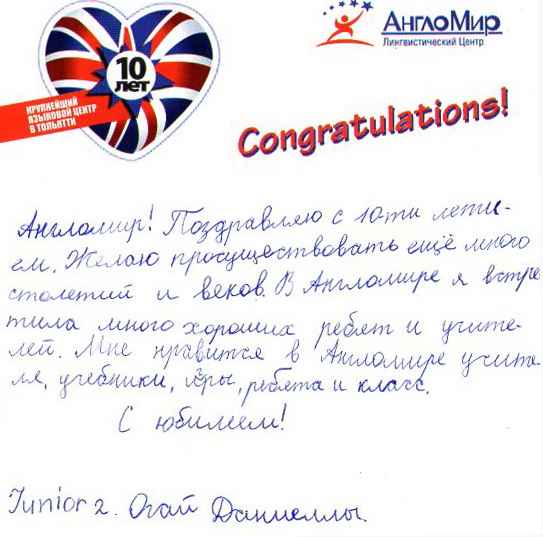 10
лет
КРУПНЕЙШИЙ
ЯЗЫКОВОЙ ЦЕНТР
В ТОЛЬЯТТИ
АнглоМир
Лингвистический Центр
Congratulations!
Англомир! Поздравляю с 10-ти лети-
ем. Желаю просуществовать ещё много
столетий и веков. В Англомире я встре
тила много хороших ребят и учите-
лей. Мне нравится в Англомире учите
ля, учебники, игры, ребята и класс.
С юбилеем!
Junior 2. Огай Даниеллы.